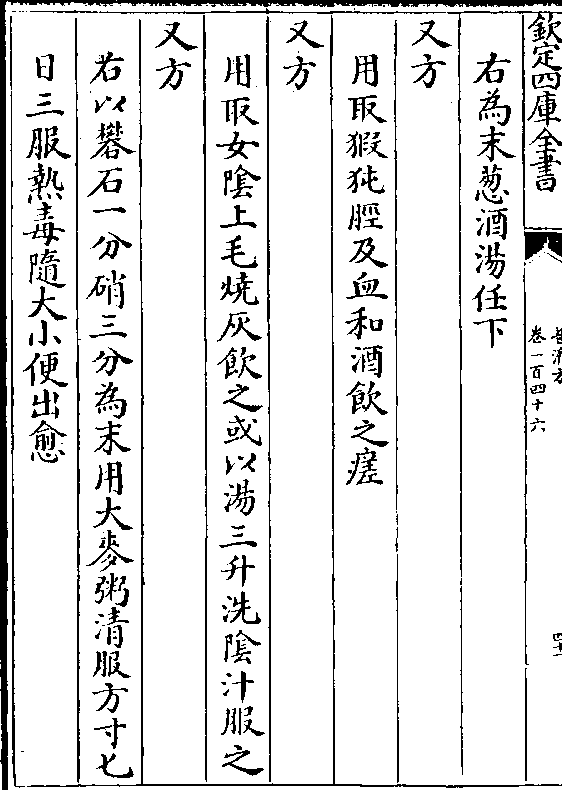 欽定四庫全書
卷一百四十六
右為末葱酒湯任下
又方
用取猳㹠脛及血和酒飲之瘥
又方
用取女陰上毛燒灰飲之或以湯三升洗陰汁服之
又方
右以礬石一分硝三分為末用大麥粥清服方寸匕
日三服熱毒隨大小便出愈